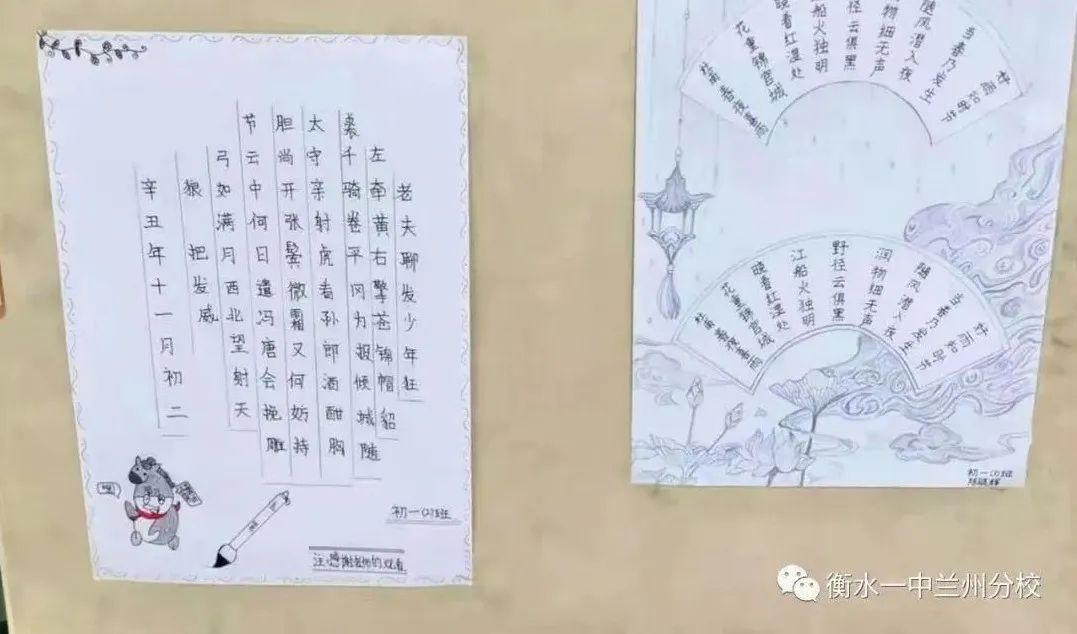 老夫聊发少年狂
左牵黄右擎苍锦帽貂
裘千骑卷平冈为报倾城随
太守亲射虎看孙郎酒酣胸
胆尚开张鬓微霜又何妨持
节云中何日遣冯唐会挽雕
弓如满月西北望射天
狼 把发威
辛丑年十一月初二
初一(2)班
注:感谢老师的观看
好雨知时节
当春乃发生
随风潜入夜
物细无声
径云俱黑
船火独明
晓看红湿处
花重锦官城
杜甫春夜喜雨
好雨知时节
当春乃发生
随风潜入夜
润物细无声
野径云俱黑
江船火独明
晓看红湿处
花重锦官城
杜甫春夜喜雨
初一(2)班
衡水一中兰州分校